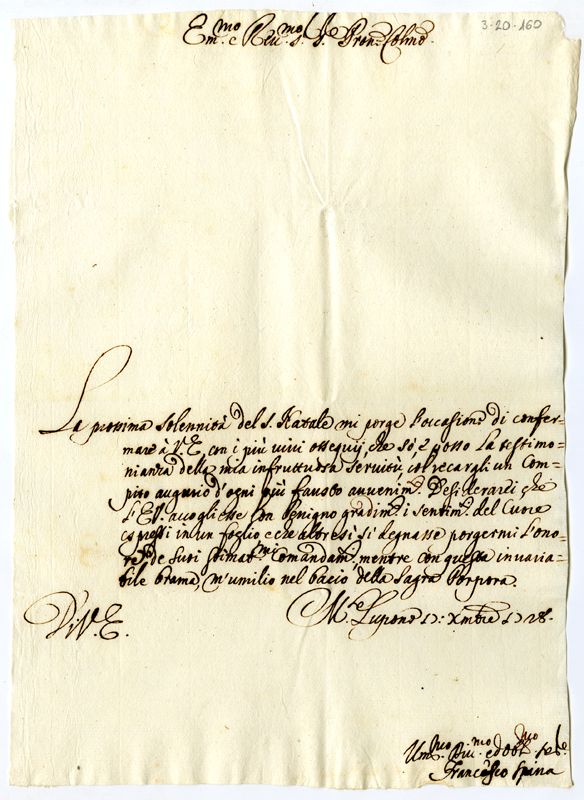 3-20-160
Em.mo e Reu.mo S.r S.r Pron. Colmo.
La prossima solennità del S. Natale mi porge l'occasione di confer=
mare à V.E. con i più vivi ossequij che sò, e posso la testimo=
nianza della mia infruttuosa servitù, col recargli un com=
pito augurio d'ogni più fausto avvenim.to Desiderarei che
l'E.V. accogliesse con benigno gradim.to i sentim.ti del Cuore
espressi in un foglio e che altresi si degnasse porgermi l'ono=
re de suoi stimat.mi Comandam.ti mentre con questa invaria=
bile brama m'umilio nel bacio della Sagra Porpora.
Di V.E.
M.te Lupone 17: Xmbre 1728.
Um.mo Diu.mo ed Obl.mo
Francesco Spina